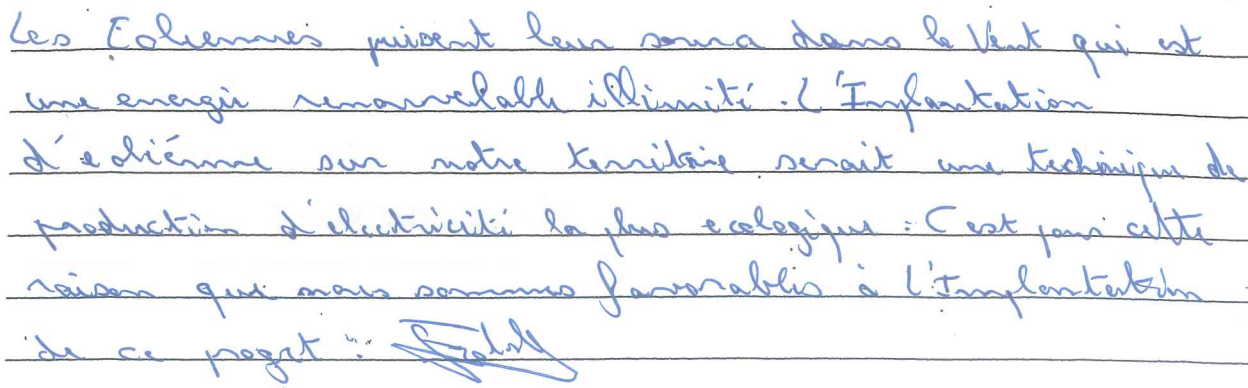 Les Eoliennes puisent leur dans le Vent qui est
une energie renouvelable illimité. L'Implantation
d'eoliénne sur notre territoire serait une technique de
production d'electricité la plus ecologique. C'est pour cette
raison que nous sommes favorables à l'Implantation
de ce projet.